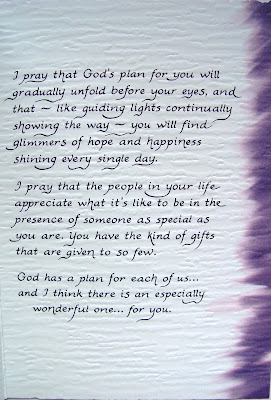 I pray that God's plan for you will
gradually unfold before your eyes, and
that ~ like guiding lights continually
showing the way ~ you will find
glimmers of hope and happiness
shining every single day.
I pray that the people in your life
appreciate what it's like to be in the
presence of someone as special as
you are. You have the kind of gifts
that are given to so few.
God has a plan for each of us...
and I think there is an especially
wonderful one... for you.